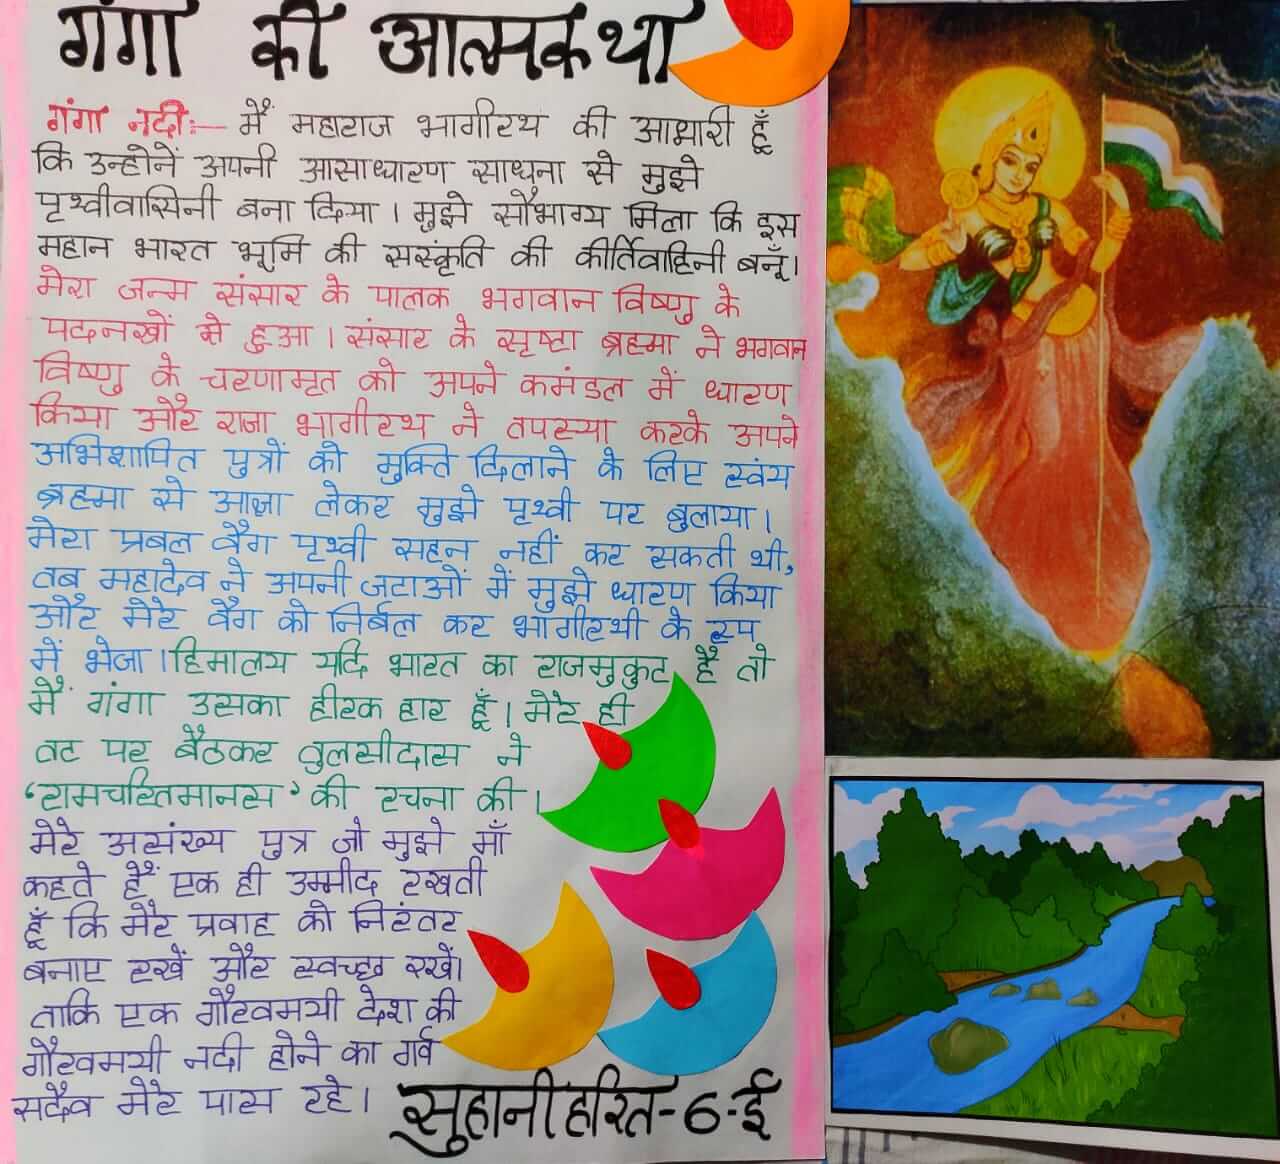 गंगा की आत्मकथा
गंगा नदी:— मैं महाराज भागीरथ की आभारी हूँ
कि उन्होनें अपनी आसाधारण साधना से मुझे
पृथ्वीवासिनी बना दिया। मुझे सौभाग्य मिला कि इस
महान भारत भूमि की सस्कृंति की कीर्तिवाहिनी बनूँ।
मेरा जन्म संसार के पालक भगवान विष्णु के
पदनखों से हुआ। संसार के सृष्टा ब्रह्मा ने भगवान
विष्णु के चरणामृत को अपने कमंडल में धारण
किया और राजा भागीरथ ने तपस्या करके अपने
अभिशापित पुत्रों को मुक्ति दिलाने के लिए स्वंय
ब्रह्मा से आज्ञा लेकर मुझे पृथ्वी पर बुलाया।
मेरा प्रबल वैग पृथ्वी सहन नहीं कर सकती थी,
तब महादेव ने अपनी जटाओं में मुझे धारण किया
और मेरे वैग को निर्बल कर भागीरथी के रूप
में भेजा। हिमालय यदि भारत का राजमुकुट है तो
मैं गंगा उसका हीरक हार हूँ। मेरे ही
तट पर बैठकर तुलसीदास ने
'रामचरितमानस' की रचना की।
मेरे असंख्य पुत्र जो मुझे माँ
कहते हैं एक ही उम्मीद रखती
हूँ कि मेरे प्रवाह को निरंतर
बनाए रखें और स्वच्छ रखें।
ताकि एक गौरवमयी देश की
गौरवमयी नदी होने का गर्व
सदैव मेरे पास रहे।
सुहानी हरित-6-ई